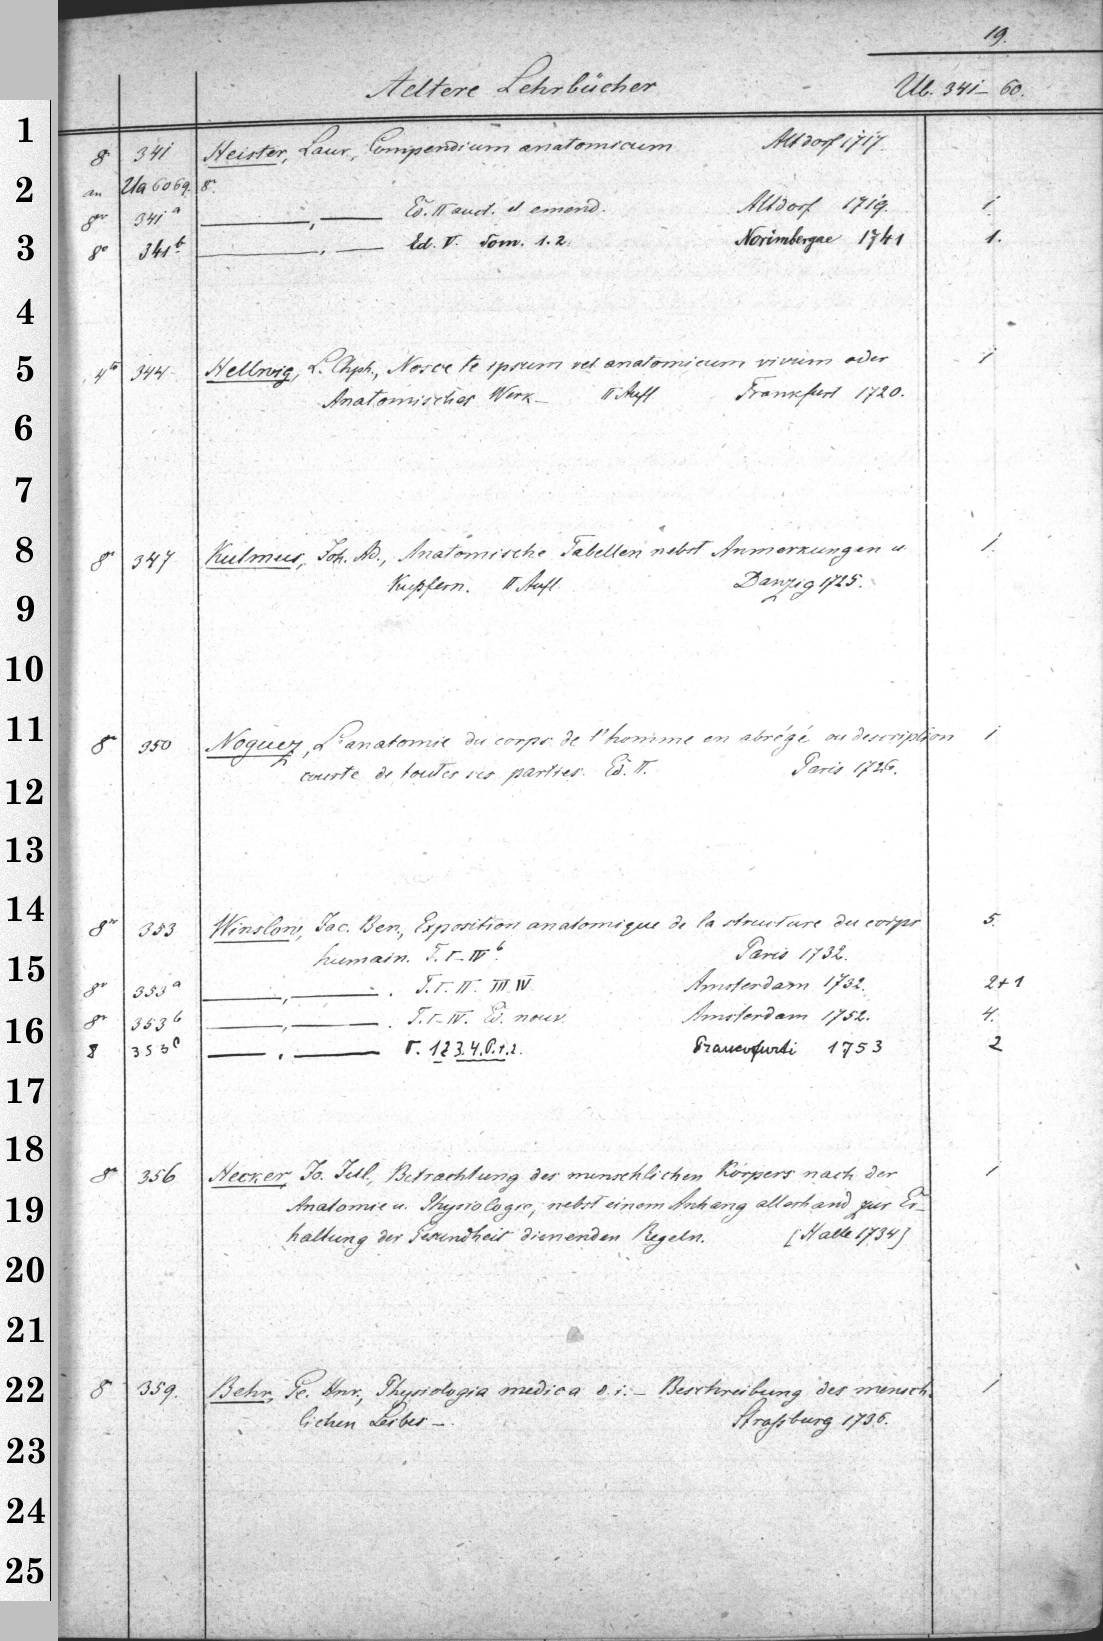 19.
Aeltere Lehrbücher Ub. 341–60.
1
8º 341 Heister, Laur., Compendium anatomicum Altdorf 1717.
2 an Ua 6069. 8º.
8º 341a ———, —— Ed. II auct. et emend. Altdorf 1719. 1.
3 8º 341b ———, —— Ed. V. Tom. 1.2. Norimbergae 1741 1.
4
5 4to 344 Hellwig, L. Chph., Nosce te ipsum vel anatomicum vivum oder 1
Anatomisches Werk – II Aufl Frankfurt 1720.
6
7
8 8º 347 Kulmus, Joh. Ad., Anatomische Tabellen nebst Anmerkungen u 1.
9 Kupfern. II Aufl. Danzig 1725.
10
11 8º 350 Noguez, L'anatomie du corps de l'homme en abrégé ou description 1
12 courte de toutes ses parties. Ed. II. Paris 1726.
13
14 8º 353 Winslow, Jac. Ben., Exposition anatomique de la structure du corps 5.
15 humain. T. I–IV b. Paris 1732.
8º 353a ———, ———. T. I. II. III. IV. Amsterdam 1732. 2+1
16 8º 353b ———, ———. T. I–IV. Ed. nouv. Amsterdam 1752. 4.
8 353c ——, ——— T. 1.2 3.4. P.1.2. Francofurti 1753 2
17
18 8º 356 Hecker, Jo. Jul., Betrachtung des menschlichen Körpers nach der 1
19 Anatomie u. Physiologie, nebst einem Anhang allerhand zur Er–
haltung der Gesundheit dienenden Regeln. [Halle 1734]
20
21
22 8º 359. Behr, Ge. Hnr., Physiologia medica d. i. – Beschreibung des mensch– 1
lichen Leibes –. Straßburg 1736.
23
24
25